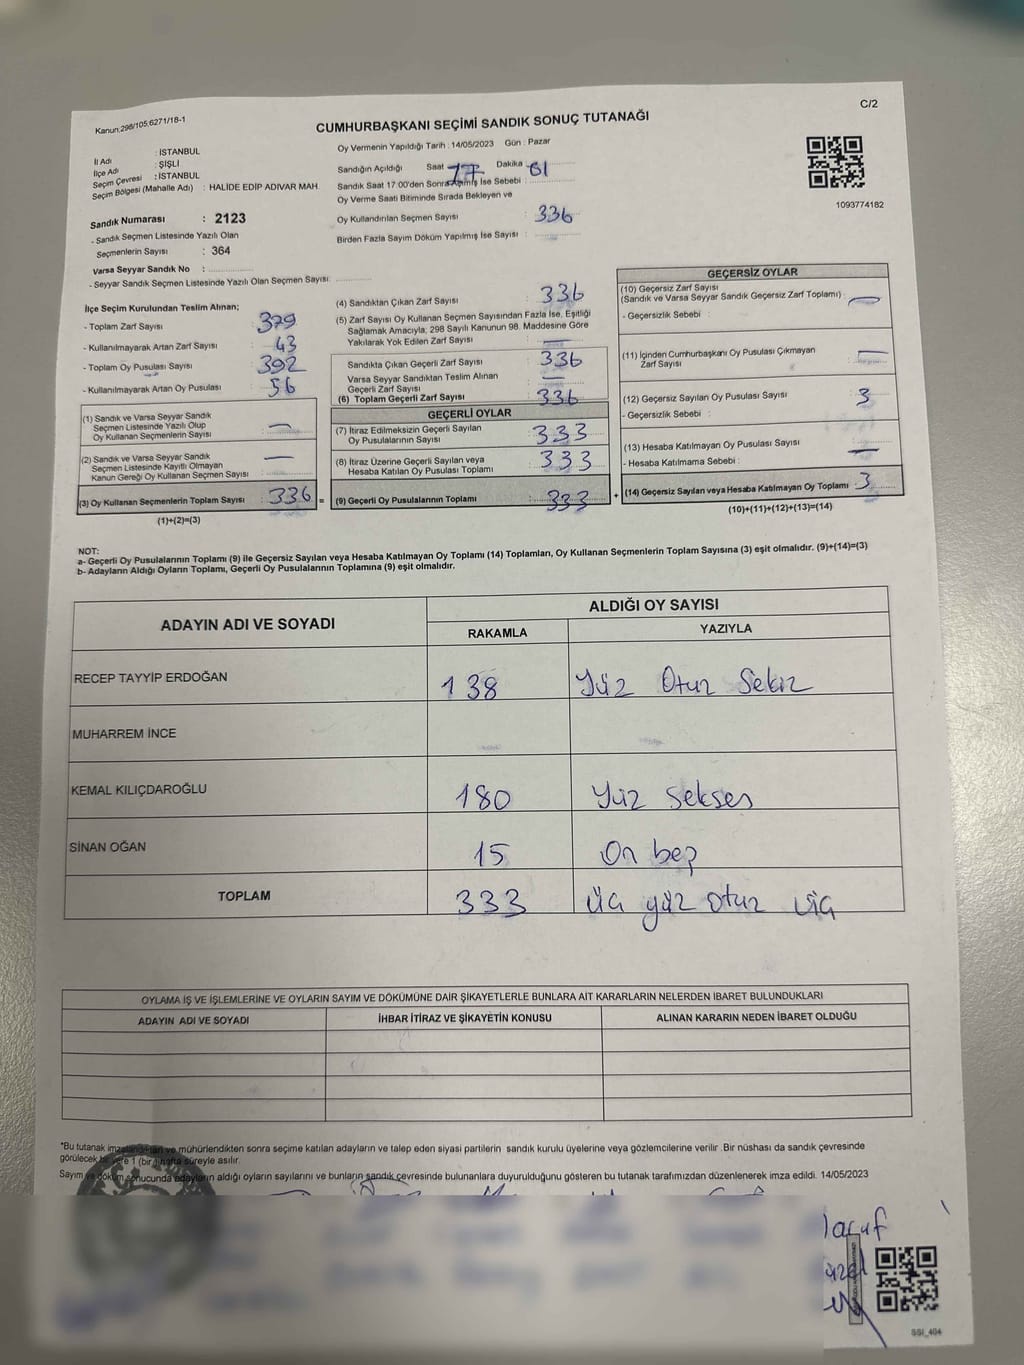 Kanun:298/105;6271/18-1
C/2
CUMHURBAŞKANI SEÇİMİ SANDIK SONUÇ TUTANAĞI
İl Adı : İSTANBUL
İlçe Adı : ŞİŞLİ
Seçim Çevresi : İSTANBUL
Seçim Bölgesi (Mahalle Adı) : HALİDE EDİP ADIVAR MAH.
Sandık Numarası : 2123
- Sandık Seçmen Listesinde Yazılı Olan
Seçmenlerin Sayısı : 364
Varsa Seyyar Sandık No :
- Seyyar Sandık Seçmen Listesinde Yazılı Olan Seçmen Sayısı:
Oy Vermenin Yapıldığı Tarih : 14/05/2023 Gün : Pazar
Sandığın Açıldığı Saat 17 Dakika 01
Sandık Saat 17:00'den Sonra Açılmış İse Sebebi :
Oy Verme Saati Bitiminde Sırada Bekleyen ve
Oy Kullandırılan Seçmen Sayısı : 336
Birden Fazla Sayım Döküm Yapılmış İse Sayısı :
1093774182
İlçe Seçim Kurulundan Teslim Alınan;
- Toplam Zarf Sayısı : 379
- Kullanılmayarak Artan Zarf Sayısı : 43
- Toplam Oy Pusulası Sayısı : 392
- Kullanılmayarak Artan Oy Pusulası : 56
(1) Sandık ve Varsa Seyyar Sandık
Seçmen Listesinde Yazılı Olup
Oy Kullanan Seçmenlerin Sayısı : —
(2) Sandık ve Varsa Seyyar Sandık
Seçmen Listesinde Kayıtlı Olmayan
Kanun Gereği Oy Kullanan Seçmen Sayısı : —
(3) Oy Kullanan Seçmenlerin Toplam Sayısı : 336 =
(1)+(2)=(3)
(4) Sandıktan Çıkan Zarf Sayısı : 336
(5) Zarf Sayısı Oy Kullanan Seçmen Sayısından Fazla İse, Eşitliği
Sağlamak Amacıyla; 298 Sayılı Kanunun 98. Maddesine Göre
Yakılarak Yok Edilen Zarf Sayısı : —
Sandıkta Çıkan Geçerli Zarf Sayısı : 336
Varsa Seyyar Sandıktan Teslim Alınan
Geçerli Zarf Sayısı : —
(6) Toplam Geçerli Zarf Sayısı : 336
GEÇERLİ OYLAR
(7) İtiraz Edilmeksizin Geçerli Sayılan
Oy Pusulalarının Sayısı : 333
(8) İtiraz Üzerine Geçerli Sayılan veya
Hesaba Katılan Oy Pusulası Toplamı : 333
(9) Geçerli Oy Pusulalarının Toplamı : 333 +
GEÇERSİZ OYLAR
(10) Geçersiz Zarf Sayısı
(Sandık ve Varsa Seyyar Sandık Geçersiz Zarf Toplamı) : —
- Geçersizlik Sebebi :
(11) İçinden Cumhurbaşkanı Oy Pusulası Çıkmayan
Zarf Sayısı : —
(12) Geçersiz Sayılan Oy Pusulası Sayısı : 3
- Geçersizlik Sebebi :
(13) Hesaba Katılmayan Oy Pusulası Sayısı : —
- Hesaba Katılmama Sebebi :
(14) Geçersiz Sayılan veya Hesaba Katılmayan Oy Toplamı : 3
(10)+(11)+(12)+(13)=(14)
NOT:
a- Geçerli Oy Pusulalarının Toplamı (9) ile Geçersiz Sayılan veya Hesaba Katılmayan Oy Toplamı (14) Toplamları, Oy Kullanan Seçmenlerin Toplam Sayısına (3) eşit olmalıdır. (9)+(14)=(3)
b- Adayların Aldığı Oyların Toplamı, Geçerli Oy Pusulalarının Toplamına (9) eşit olmalıdır.
ADAYIN ADI VE SOYADI
ALDIĞI OY SAYISI
RAKAMLA YAZIYLA
RECEP TAYYİP ERDOĞAN 138 Yüz Otuz Sekiz
MUHARREM İNCE
KEMAL KILIÇDAROĞLU 180 Yüz Seksen
SİNAN OĞAN 15 On beş
TOPLAM 333 üç yüz otuz üç
OYLAMA İŞ VE İŞLEMLERİNE VE OYLARIN SAYIM VE DÖKÜMÜNE DAİR ŞİKAYETLERLE BUNLARA AİT KARARLARIN NELERDEN İBARET BULUNDUKLARI
ADAYIN ADI VE SOYADI İHBAR İTİRAZ VE ŞİKAYETİN KONUSU ALINAN KARARIN NEDEN İBARET OLDUĞU
*Bu tutanak ve mühürlendikten sonra seçime katılan adayların ve talep eden siyasi partilerin sandık kurulu üyelerine veya gözlemcilerine verilir. Bir nüshası da sandık çevresinde
görülecek bir yere 1 (bir) hafta süreyle asılır.
Sayım ve döküm sonucunda adayların aldığı oyların sayılarını ve bunların sandık çevresinde bulunanlara duyurulduğunu gösteren bu tutanak tarafımızdan düzenlenerek imza edildi. 14/05/2023
SSI_404